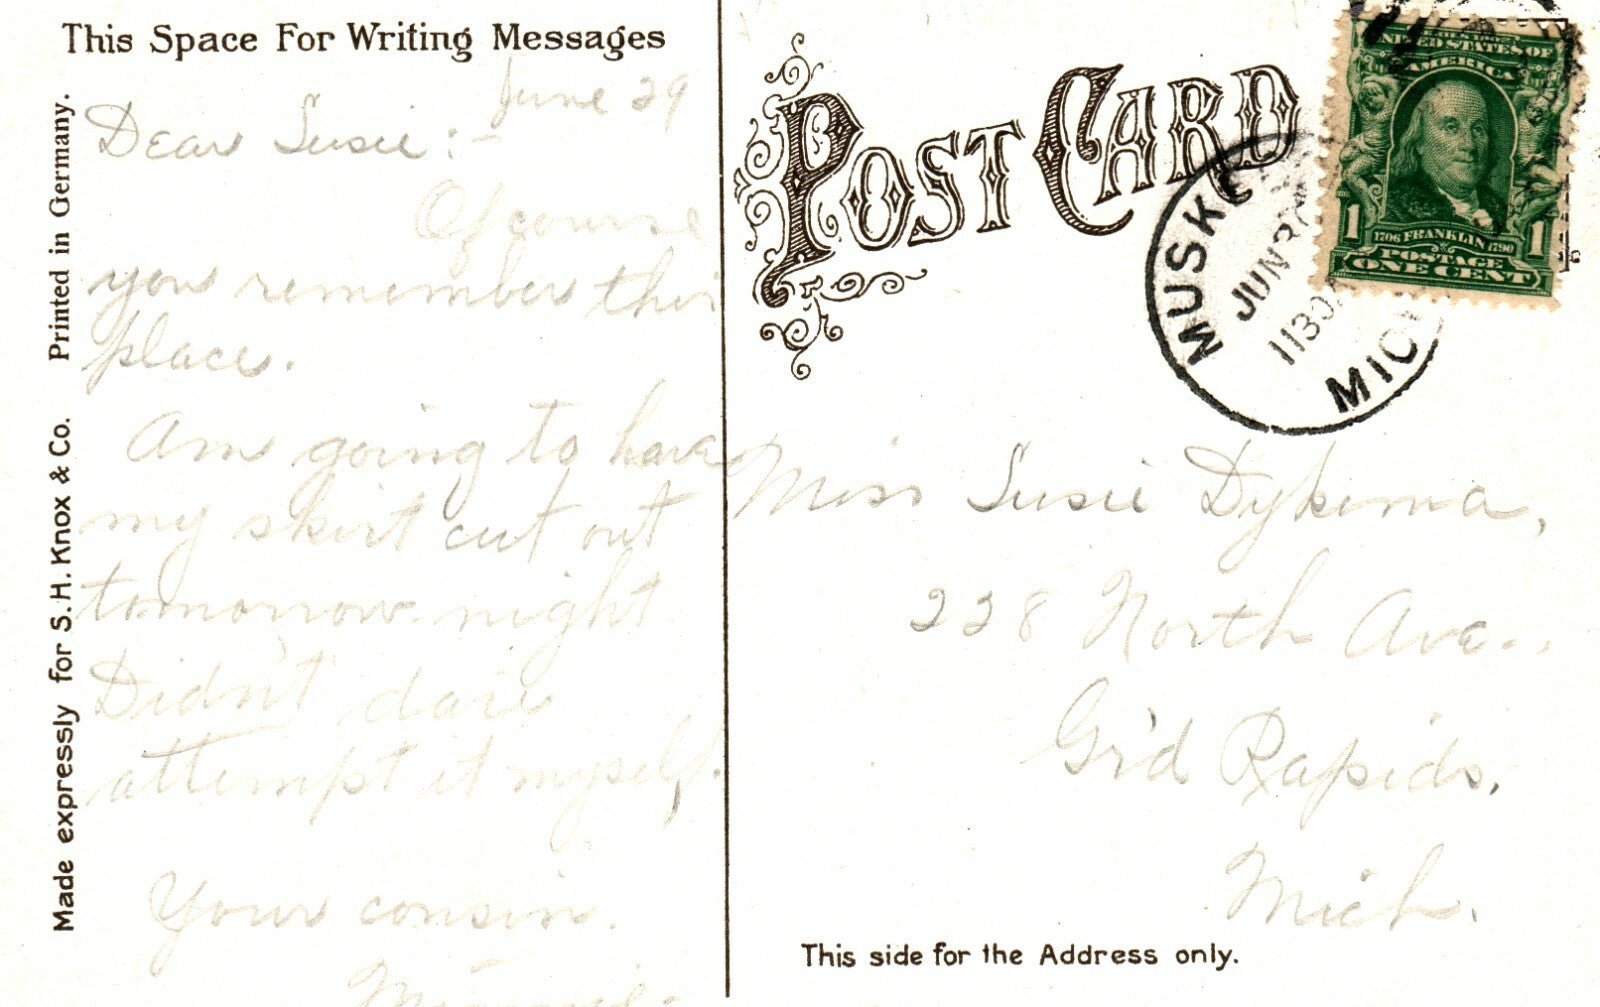 This Space For Writing Messages
June 29
Dear Susie:-
Of course
you remember this
place.
Am going to have
my skirt cut out
tomorrow night
Didn't dare
attempt it myself.
Your cousin.
Printed in Germany.
Made expressly for S. H. Knox & Co.
POST CARD
UNITED STATES OF
AMERICA
1 1
1706 FRANKLIN 1790
POSTAGE
ONE CENT
JUN 30
1130A
MICH
Miss Susie Dykema,
228 North Ave.,
Gr'd Rapids,
Mich.
This side for the Address only.